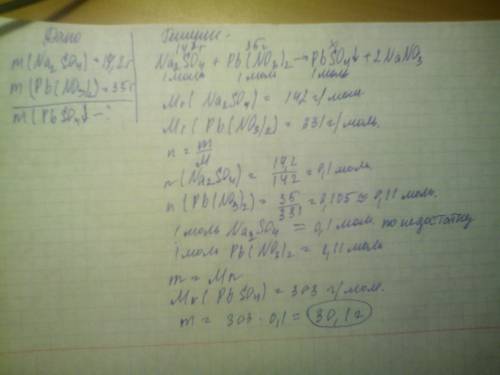 Дано
m(Na₂SO₄) = 14,2г
m(Pb(NO₃)₂) = 35г
m(PbSO₄↓ - ?
Решение.
14,2г 35г x
Na₂SO₄ + Pb(NO₃)₂ → PbSO₄↓ + 2NaNO₃
1 моль 1 моль 1 моль
Mr(Na₂SO₄) = 142 г/моль
Mr(Pb(NO₃)₂) = 331 г/моль.
n = m/M
n(Na₂SO₄) = 14,2/142 = 0,1 моль
n(Pb(NO₃)₂) = 35/331 = 0,105 ≈ 0,11 моль.
1 моль Na₂SO₄ = 0,1 моль по недостатку
1 моль Pb(NO₃)₂ = 0,11 моль
m = Mn
Mr(PbSO₄) = 303 г/моль.
m = 303 · 0,1 = 30,1г